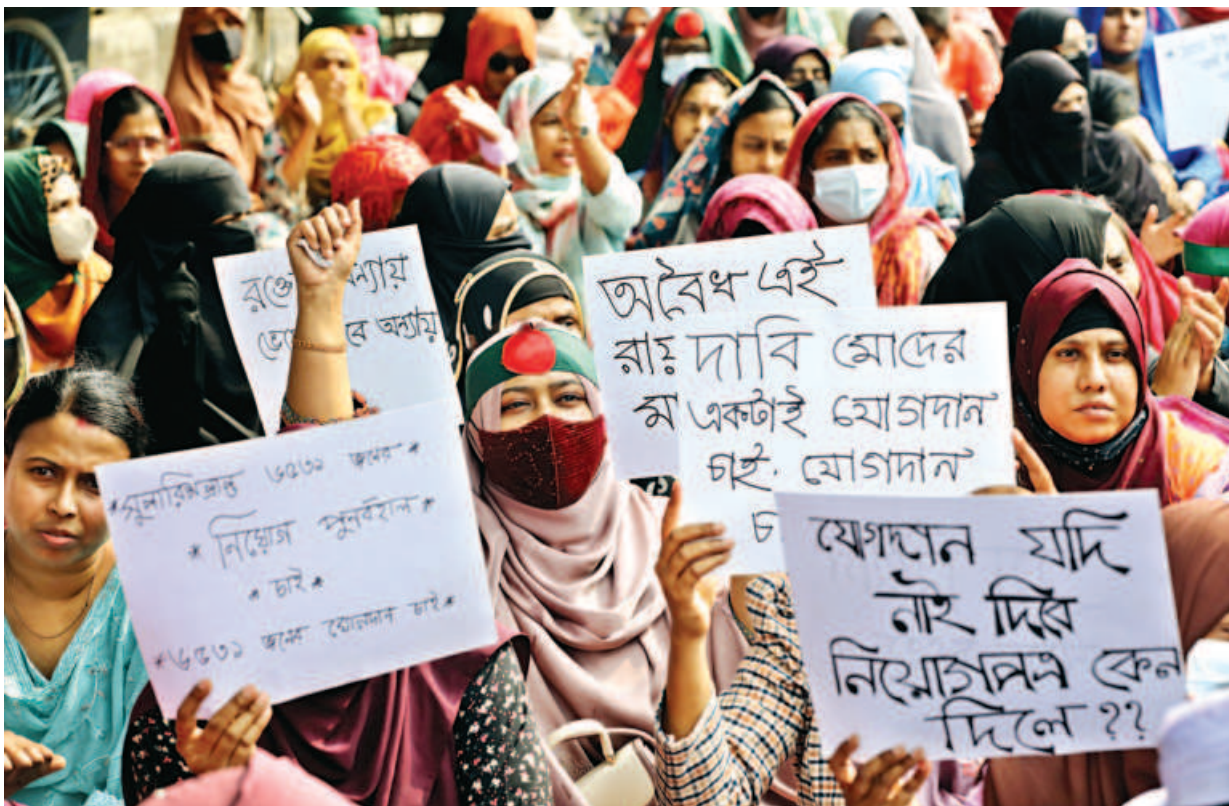 অন্যায়
অবৈধ এই
রায়
দাবি মোদের
একটাই যোগদান
চাই. যোগদান
*সুপারিশপ্রাপ্ত ৬৫৩১ জনের*
* নিয়োগ পুনর্বহাল *
* চাই *
*৬৫৩১ জনের যোগদান চাই*
যোগদান যদি
নাই দিবে
নিয়োগপত্র কেন
দিলে ??